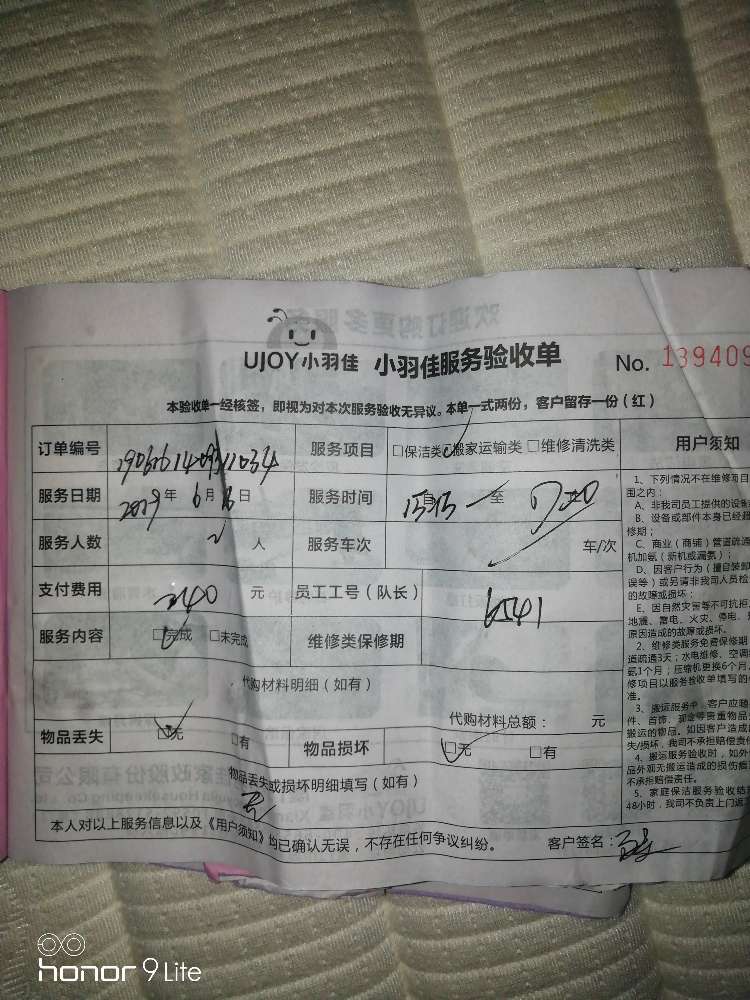 UJOY小羽佳 小羽佳服务验收单 No. 139409
本验收单一经核签，即视为对本次服务验收无异议。本单一式两份，客户留存一份（红）
订单编号 服务项目 □保洁类 □搬家运输类 □维修清洗类 用户须知
服务日期 2019年6月16日 服务时间 15:15 至
服务人数 2 人 服务车次 车/次
支付费用 240 元 员工工号（队长） 6541
服务内容 □完成 □未完成 维修类保修期
代购材料明细（如有）
代购材料总额： 元
物品丢失 □无 □有 物品损坏 □无 □有
物品丢失或损坏明细填写（如有）
无
本人对以上服务信息以及《用户须知》均已确认无误，不存在任何争议纠纷。 客户签名：
1、下列情况不在维修项目
围之内：
A、非我司员工提供的设备
B、设备或部件本身已经超
修期；
C、商业（商铺）管道疏通
机加氨（新机或漏氨）；
D、因客户行为（擅自装卸
误等）或另请非我司人员检
的故障或损坏；
E、因自然灾害等不可抗拒
地震、雷电、火灾、停电、
原因造成的故障或损坏。
2、维修类服务免费保修期
道疏通3天；水电维修、空调
氨1个月；压缩机更换6个月，
修项目以服务验收单填写的
准。
3、搬运服务中，客户应
件、首饰、现金等贵重物品
搬运的物品。如因客户造成
失/损坏，我司不承担赔偿责任
4、搬运服务验收时，如外
品外观无搬运造成的损伤痕
不承担赔偿责任。
5、家庭保洁服务验收结
48小时，我司不负责上门返
honor 9 Lite